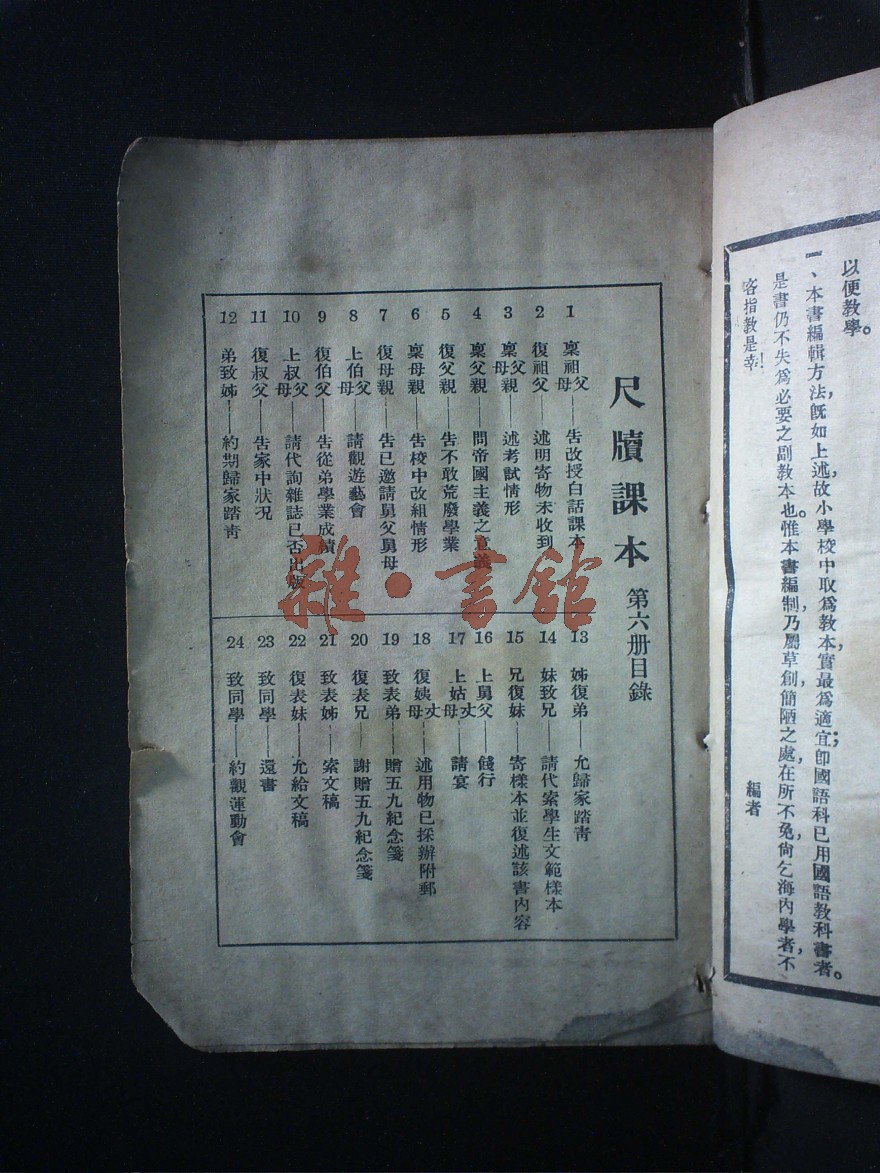 以便教學。
一、本書編輯方法,既如上述,故小學校中取為教本,實最為適宜;即國語科已用國語教科書者,
是書仍不失為必要之副教本也。惟本書編制,乃屬草創,簡陋之處,在所不免,尙乞海內學者,不
吝指教是幸!
編者
尺牘課本 第六册目錄
1 稟祖父母——告改授白話課本
2 復祖父——述明寄物未收到
3 稟父母——述考試情形
4 稟父親——問帝國主義之意義
5 復父親——告不敢荒廢學業
6 稟母親——告校中改組情形
7 復母親——告已邀請舅父舅母
8 上伯父母——請觀遊藝會
9 復伯父——告從弟學業成績
10 上叔父母——請代詢雜誌已否出版
11 復叔父——告家中狀况
12 弟致姊——約期歸家踏靑
13 姊復弟——允歸家踏靑
14 妹致兄——請代索學生文範樣本
15 兄復妹——寄樣本並復述該書內容
16 上舅父——餞行
17 上姑丈母——請宴
18 復姨丈母——述用物已採辦附郵
19 致表弟——贈五九紀念箋
20 復表兄——謝贈五九紀念箋
21 致表姊——索文稿
22 復表妹——允給文稿
23 致同學——還書
24 致同學——約觀運動會
雜·書館